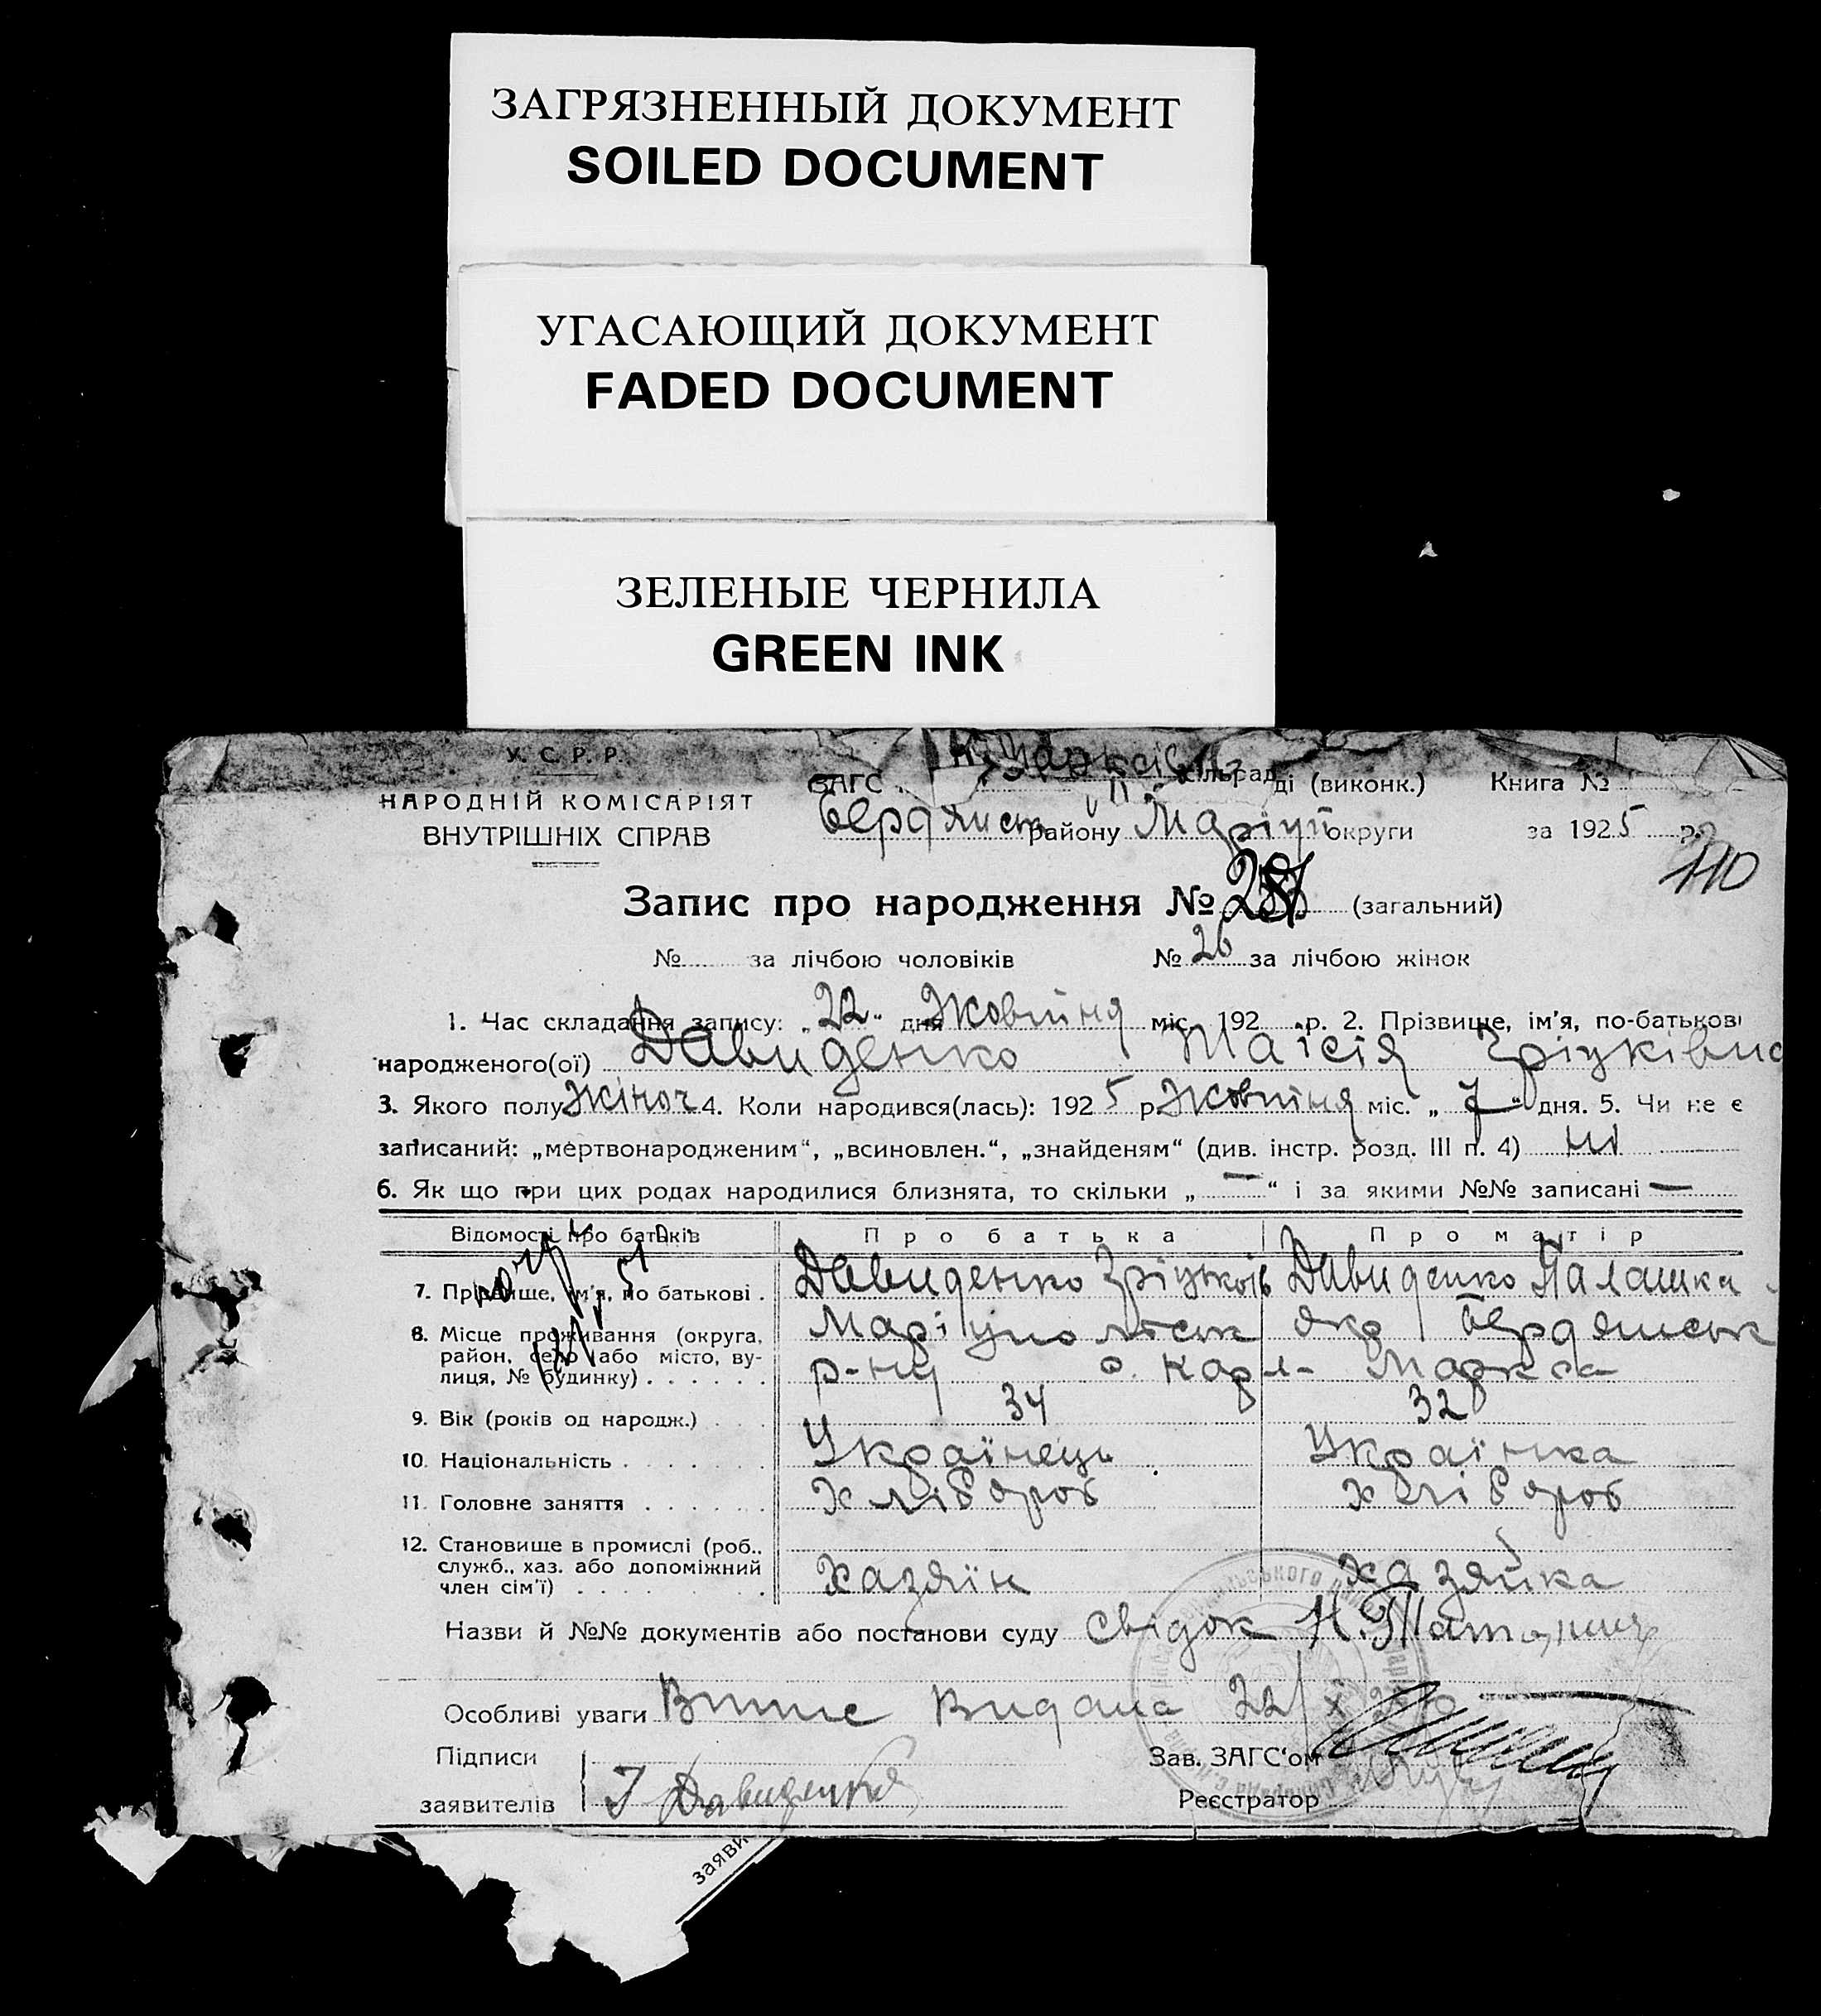 ЗАГРЯЗНЕННЫЙ ДОКУМЕНТ
SOILED DOCUMENT
УГАСАЮЩИЙ ДОКУМЕНТ
FADED DOCUMENT
ЗЕЛЕНЫЕ ЧЕРНИЛА
GREEN INK
У. С. Р. Р.
НАРОДНІЙ КОМІСАРІЯТ
ВНУТРІШНІХ СПРАВ
ЗАГС сільрад ді (виконк.) Книга №
Бердянськ району Маріуп округи за 1925 р.
110
Запис про народження № (загальний)
№ за лічбою чоловіків № 26 за лічбою жінок
1. Час складання запису: „22“ дня Жовтня міс. 192 р. 2. Прізвище, ім'я, по-батькові
народженого(ої) Давиденко Таїсія
3. Якого полу Жіноч 4. Коли народився(лась): 1925 р Жовтня міс. „7“ дня. 5. Чи не є
записаний: „мертвонародженим“, „всиновлен.“, „знайденям“ (див. інстр. розд. III п. 4) ні
6. Як що при цих родах народилися близнята, то скільки „—“ і за якими №№ записані —
Відомості про батьків Про батька Про матір
7. Прізвище, ім'я, по батькові . Давиденко Давиденко Палашка
8. Місце проживання (округа, Маріупольськ окр Бердянськ
район, село або місто, ву-
лиця, № будинку) . . . . . . р-ну с. Карл- Маркса
9. Вік (років од народж.) . . 34 32
10. Національність . . . . . . . Українець Українка
11. Головне заняття . . . . . . хлібороб хлібороб
12. Становище в промислі (роб.,
служб., хаз. або допоміжний
член сім'ї) . . . . . . . . хазяїн хазяйка
Назви й №№ документів або постанови суду Свідок Н.
Особливі уваги Випис Видана 22/X
Підписи Зав. ЗАГС'ом
заявителів Давиденко Реєстратор
заяви